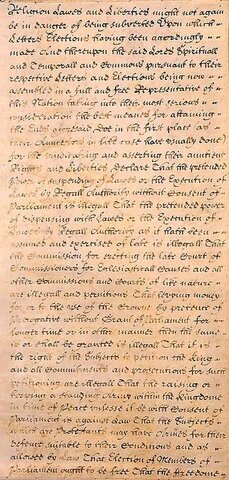 Religion Lawes and Liberties might not again
be in danger of being subverted Upon which
Letters Elections having been accordingly
made And thereupon the said Lords Spirituall
and Temporall and Commons pursuant to their
respective Letters and Elections being now
assembled in a full and free Representative of
this Nation taking into their most serious
consideration the best meanes for attaining
the Ends aforesaid Doe in the first place as
their Auncestors in like case have usually done
for the vindicating and asserting their auntient
Rights and Liberties, Declare That the pretended
Power of suspending of Lawes or the Execution of
Lawes by Regall Authority without Consent of
Parliament is illegall That the pretended power
of dispensing with Lawes or the Execution of
Lawes by Regall Authority as it hath been
assumed and exercised of late is illegall That
the Commission for erecting the late Court of
Commissioners for Eclesiasticall Causes and all
other Commissions and Courts of like nature
are illegall and pernitious That levying money
for or to the use of the Crowne by pretence of
Prerogative without Grant of Parliament for
longer time or in other manner then the same
is or shall be granted is illegall That it is
the right of the Subjects to petition the King
and all Committments and prosecutions for such
petitioning are illegall That the raising or
keeping a standing Army within the Kingdome
in time of Peace unlesse it be with Consent of
Parliament is against Law That the Subjects
which are Protestants may have Armes for their
defence suitable to their Conditions and as
allowed by Law That Election of Members of
Parliament ought to be free That the freedome